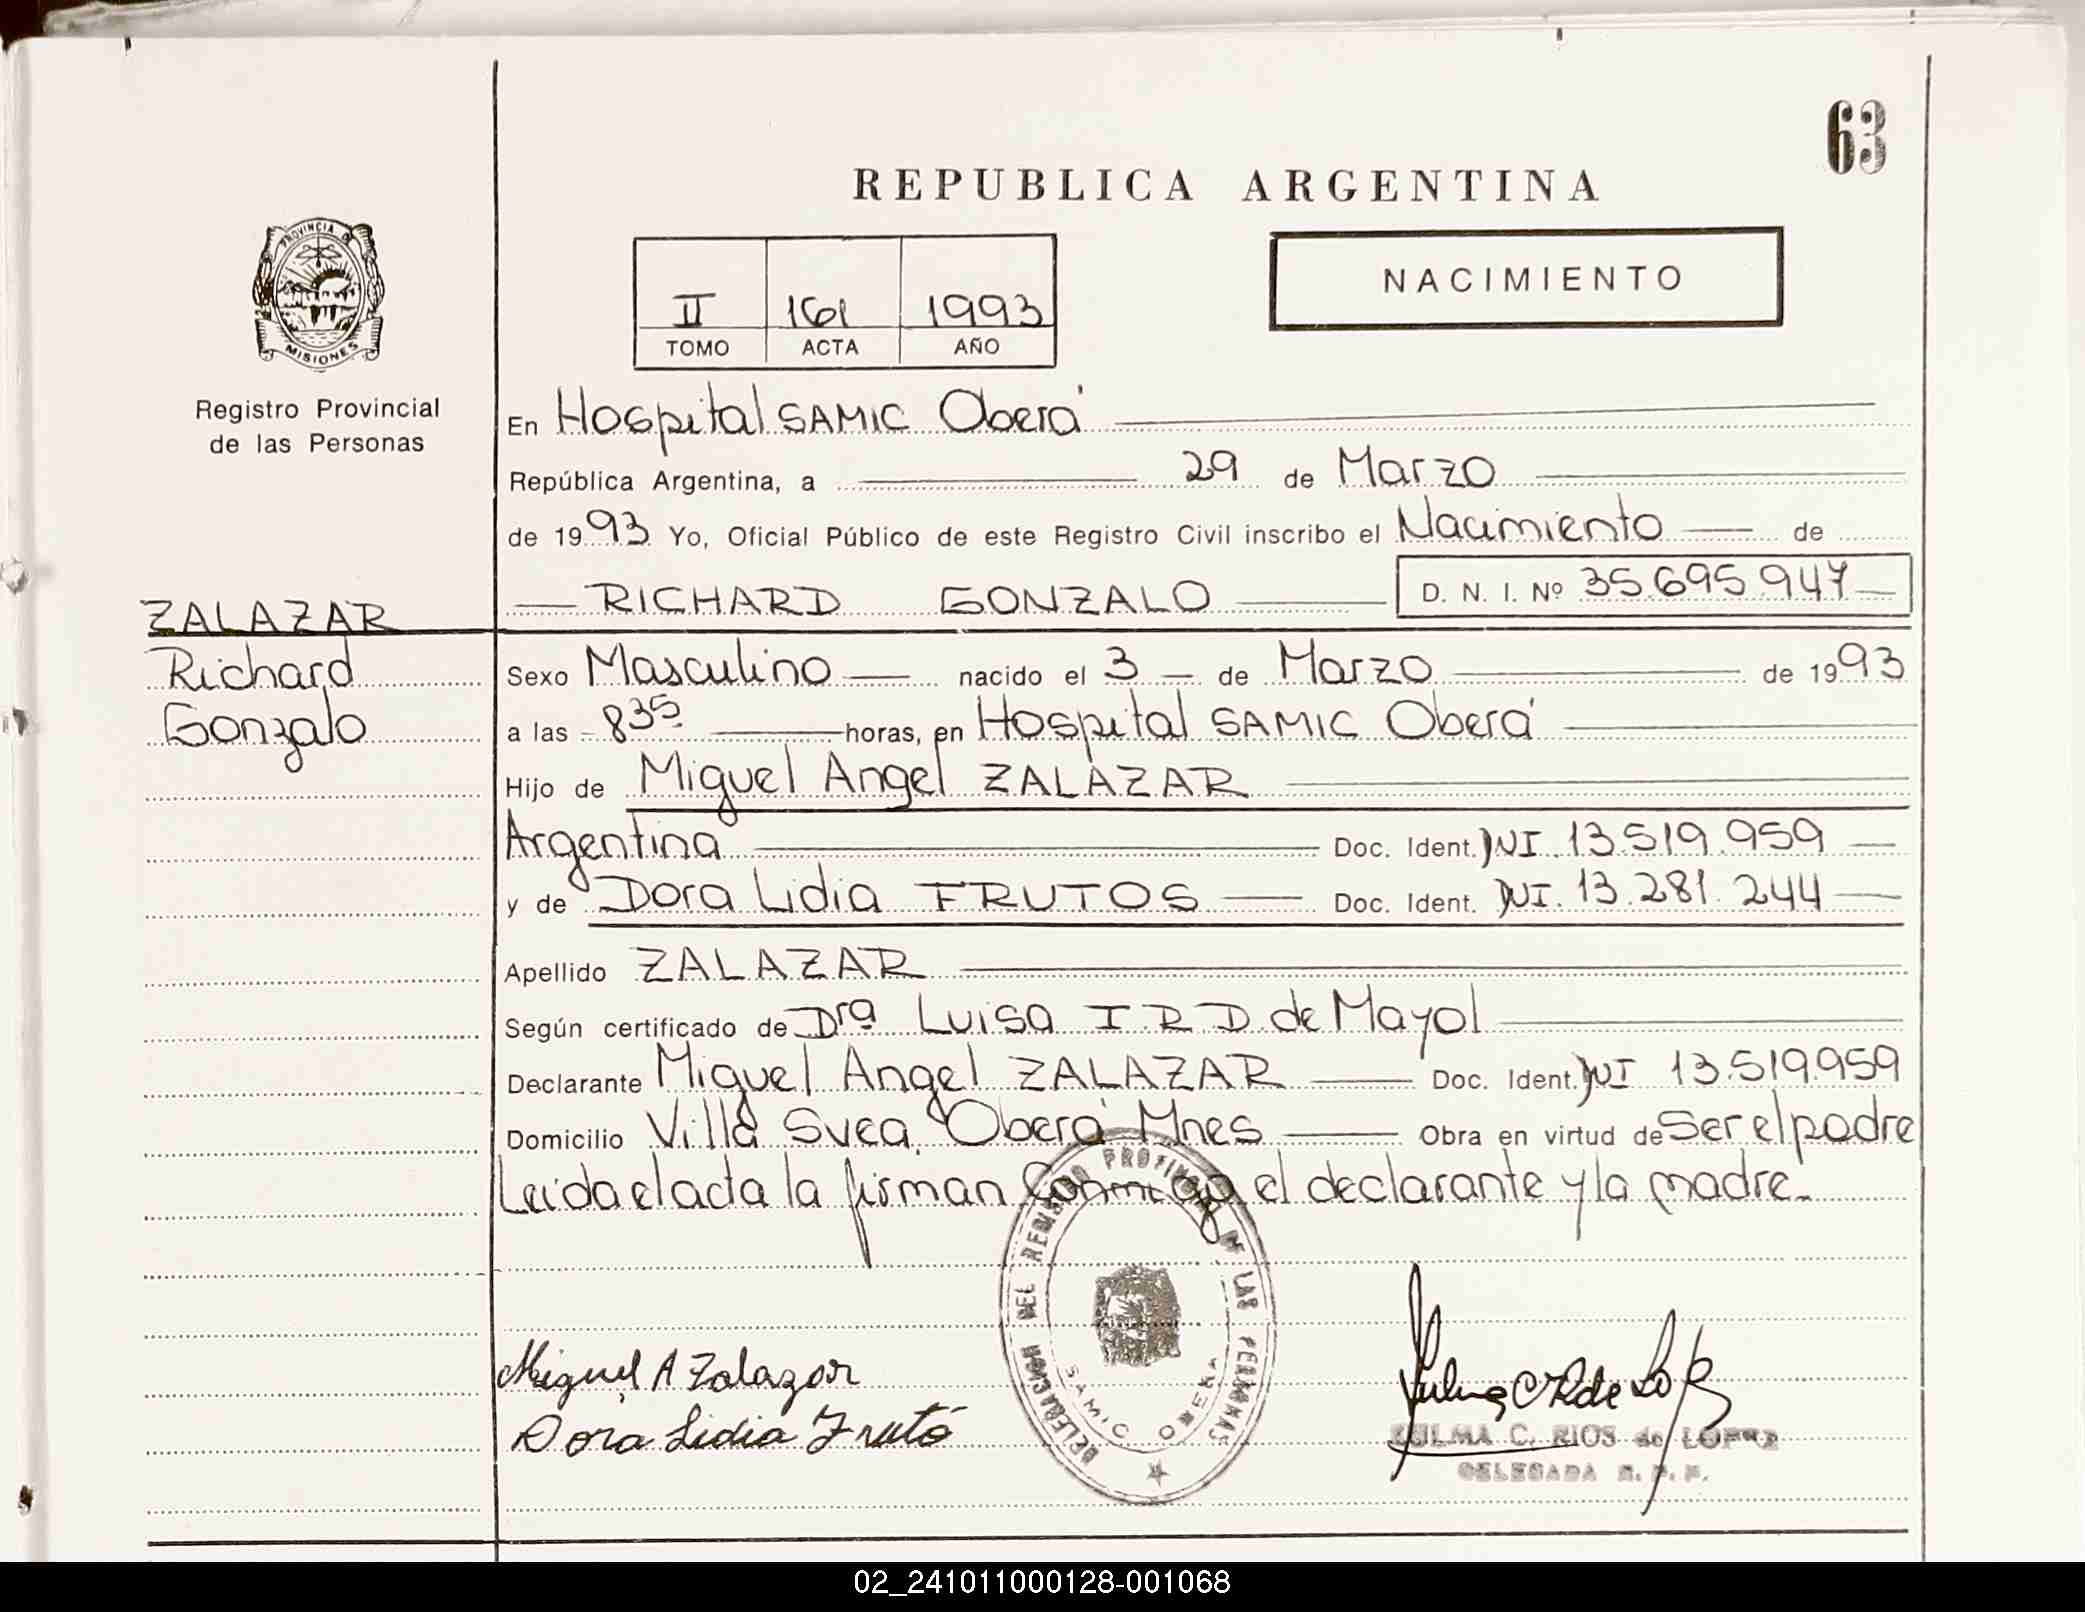 63
REPUBLICA ARGENTINA
PROVINCIA DE
MISIONES
Registro Provincial
de las Personas
II 161 1993
TOMO ACTA AÑO
NACIMIENTO
En Hospital SAMIC Oberá
República Argentina, a 29 de Marzo
de 1993 Yo, Oficial Público de este Registro Civil inscribo el Nacimiento de
RICHARD GONZALO D. N. I. Nº 35.695.947
ZALAZAR
Richard
Gonzalo
Sexo Masculino nacido el 3 de Marzo de 1993
a las 835 horas, en Hospital SAMIC Oberá
Hijo de Miguel Angel ZALAZAR
Argentina Doc. Ident. DNI 13.519.959
y de Dora Lidia FRUTOS Doc. Ident. DNI. 13.281.244
Apellido ZALAZAR
Según certificado de Drª Luisa I R D de Mayol
Declarante Miguel Angel ZALAZAR Doc. Ident. DNI 13.519.959
Domicilio Villa Svea, Oberá Mnes Obra en virtud de Ser el padre
Leída el acta la firman Conmigo el declarante y la madre.
DELEGACION DEL REGISTRO PROVINCIAL DE LAS PERSONAS
SAMIC OBERA
Miguel A Zalazar
Dora Lidia Fruto
ZULMA C. RIOS de LOPEZ
DELEGADA R. P. P.
02_241011000128-001068